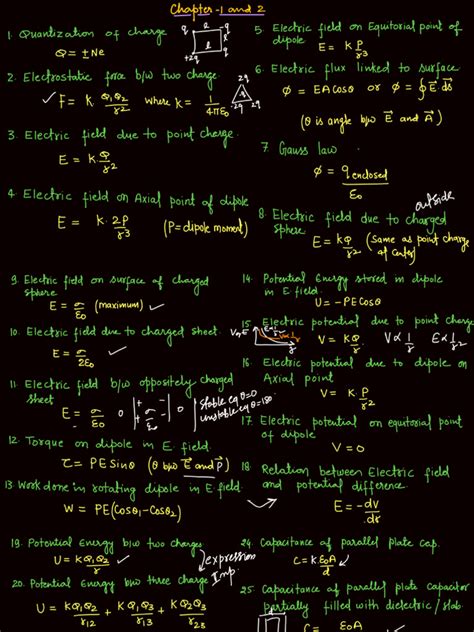 Chapter-1 and 2
1. Quantization of charge
Q = ±Ne
q 2 -q
l
l
+2q q
2. Electrostatic force b/w two charge
F = k Q1Q2/r2 where k = 1/4πε0
2q
-2q 2q
3. Electric field due to point charge
E = k Q/r2
4. Electric field on Axial point of dipole
E = k 2P/r3 (P=dipole moment)
5. Electric field on Equitorial point of
dipole E = K P/r3
6. Electric flux linked to surface
ϕ = EA cosθ or ϕ = ∮E⃗ ds⃗
(θ is angle b/w E⃗ and A⃗)
7. Gauss law
ϕ = q enclosed/ε0
outside
8. Electric field due to charged
sphere E = KQ/r2 (Same as point charge
at center)
9. Electric field on surface of charged
sphere
E = σ/ε0 (maximum)
10. Electric field due to charged sheet.
E = σ/2ε0
11. Electric field b/w oppositely charged
sheet
E = σ/ε0 0 | + - | 0
stable eq θ=0
unstable eq θ=180
12. Torque on dipole in E field.
τ = PE sinθ (θ b/w E⃗ and P⃗)
13. Work done in rotating dipole in E field
W = PE(cosθ1 - cosθ2)
14. Potential Energy stored in dipole
in E field.
U = -PE cosθ
15. Electric potential due to point charge
V = KQ/r V∝1/r E∝1/r2
16. Electric potential due to dipole on
Axial point
V = K P/r2
17. Electric potential on equitorial point
of dipole
V = 0
18. Relation between Electric field
and potential difference.
E = -dV/dr
19. Potential Energy b/w two charges
U = KQ1Q2/r
expression
Imp.
20. Potential Energy b/w three charge
U = KQ1Q2/r12 + KQ1Q3/r13 + KQ2Q3/r23
24. Capacitance of parallel plate cap.
C = K ε0A/d
25. Capacitance of parallel plate capacitor
partially filled with dielectric / slab.
C = ε0A